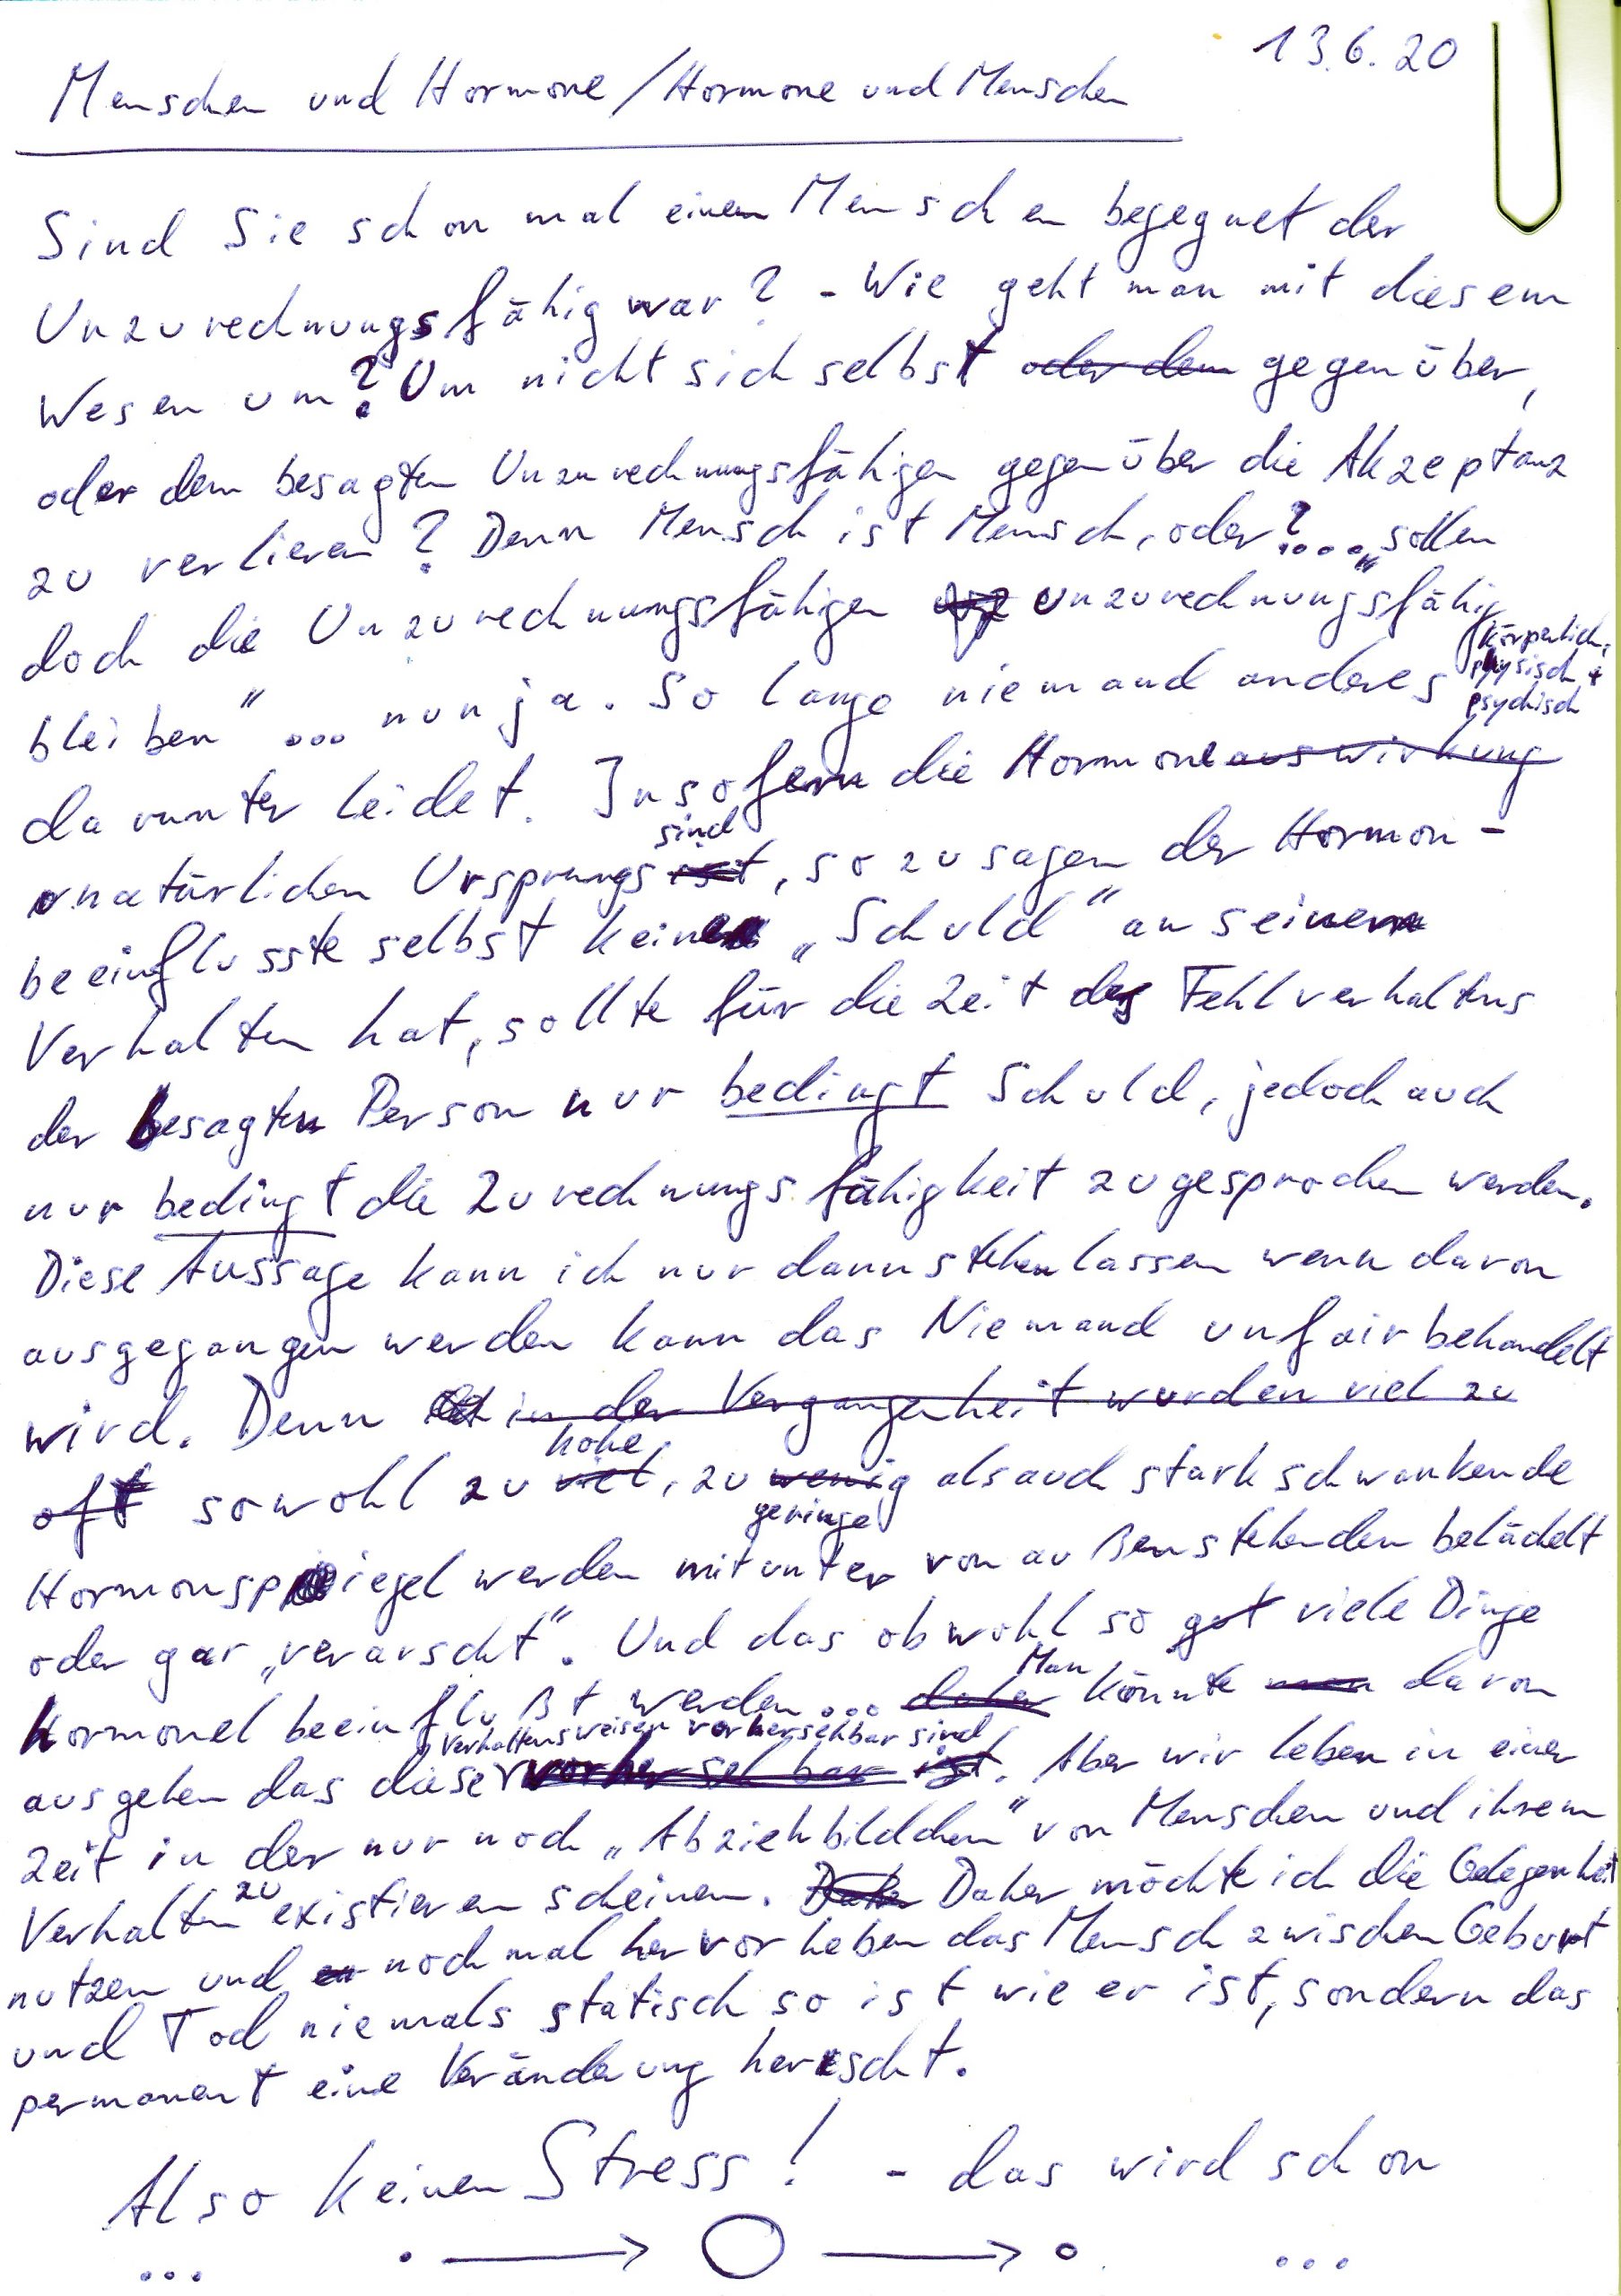 13.6.20
Menschen und Hormone/Hormone und Menschen
Sind Sie schon mal einem Menschen begegnet der
Unzurechnungsfähig war? - Wie geht man mit diesem
Wesen um? Um nicht sich selbst oder dem gegenüber,
oder dem besagten Unzurechnungsfähigen gegenüber die Akzeptanz
zu verlieren? Denn Mensch ist Mensch, oder?... „sollen
doch die Unzurechnungsfähigen unzurechnungsfähig
bleiben" ... nun ja. So lange niemand anderes körperlich, physisch + psychisch
darunter leidet. Insofern die Hormonauswirkung
natürlichen Ursprungs ist sind, sozusagen der Hormon-
beeinflusste selbst keine „Schuld" an seinem
Verhalten hat, sollte für die Zeit des Fehlverhaltens
der besagten Person nur bedingt Schuld, jedoch auch
nur bedingt die Zurechnungsfähigkeit zugesprochen werden.
Diese Aussage kann ich nur dann stehen lassen wenn davon
ausgegangen werden kann das Niemand unfair behandelt
wird. Denn in der Vergangenheit wurden viel zu
oft sowohl zu viel hohe, zu wenig geringe als auch stark schwankende
Hormonspiegel werden mitunter von außenstehenden belächelt
oder gar „verarscht". Und das obwohl so gut viele Dinge
hormonel beeinflußt werden... daher Man könnte man davon
ausgehen das diese Verhaltensweisen vorhersehbar sind vorhersehbar ist. Aber wir leben in einer
Zeit in der nur noch „Abziehbildchen" von Menschen und ihrem
Verhalten zu existieren scheinen. Daher Daher möchte ich die Gelegenheit
nutzen und nochmal hervorheben das Mensch zwischen Geburt
und Tod niemals statisch so ist wie er ist, sondern das
permanent eine Veränderung herrscht.
Also keinen Stress! - das wird schon
... ...